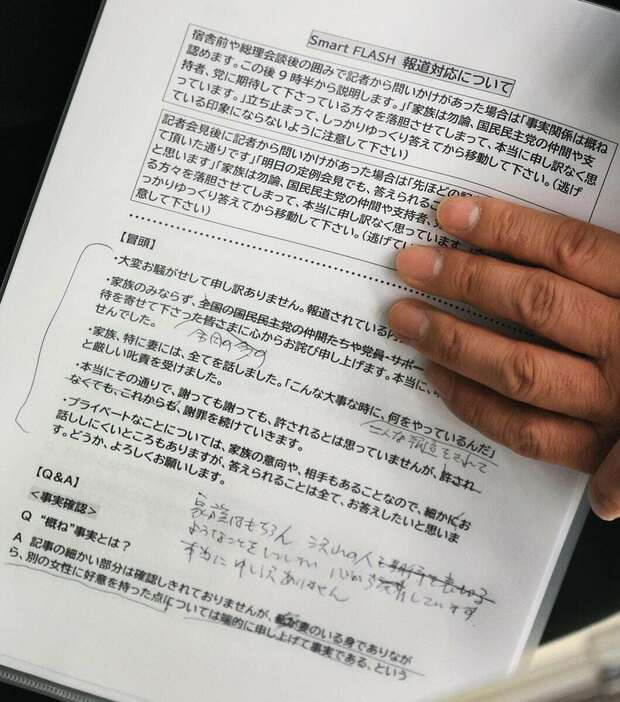 Smart FLASH 報道対応について
宿舎前や総理会談後の囲みで記者から問いかけがあった場合は「事実関係は概ね
認めます。この後9時半から説明します。」「家族は勿論、国民民主党の仲間や支
持者、党に期待して下さっている方々を落胆させてしまって、本当に申し訳なく思
っています。」立ち止まって、しっかりゆっくり答えてから移動して下さい。(逃げ
ている印象にならないように注意して下さい)
記者会見後に記者から問いかけがあった場合は「先ほどの記
て頂いた通りです」「明日の定例会見でも、答えられるこ
と思います」「家族は勿論、国民民主党の仲間や支持者、
る方々を落胆させてしまって、本当に申し訳なく思っています。
っかりゆっくり答えてから移動して下さい。(逃げてい
意して下さい)
【冒頭】
・大変お騒がせして申し訳ありません。報道されている内
・家族のみならず、全国の国民民主党の仲間たちや党員・サポー
待を寄せて下さった皆さまに心からお詫び申し上げます。本当に、
せんでした。
全国の多くの
・家族、特に妻には、全てを話しました。「こんな大事な時に、何をやっているんだ」
と厳しい叱責を受けました。
・本当にその通りで、謝っても謝っても、許されるとは思っていませんが、許され
なくても、これからも、謝罪を続けていきます。
・プライベートなことについては、家族の意向や、相手もあることなので、細かにお
話ししにくいところもありますが、答えられることは全て、お答えしたいと思いま
す。どうか、よろしくお願いします。
【Q&A】
<事実確認>
Q “概ね”事実とは?
家族はもちろん 沢山の人を
ようなことをしてしまい 心から
本当に申し訳ありません
A 記事の細かい部分は確認しきれておりませんが、私が妻のいる身でありなが
ら、別の女性に好意を持った点については端的に申し上げて事実である、という